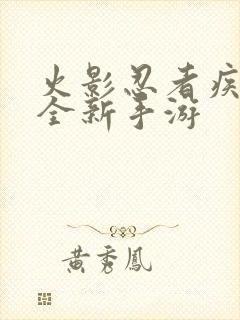 火影忍者疾
全新手游
黄秀鳳